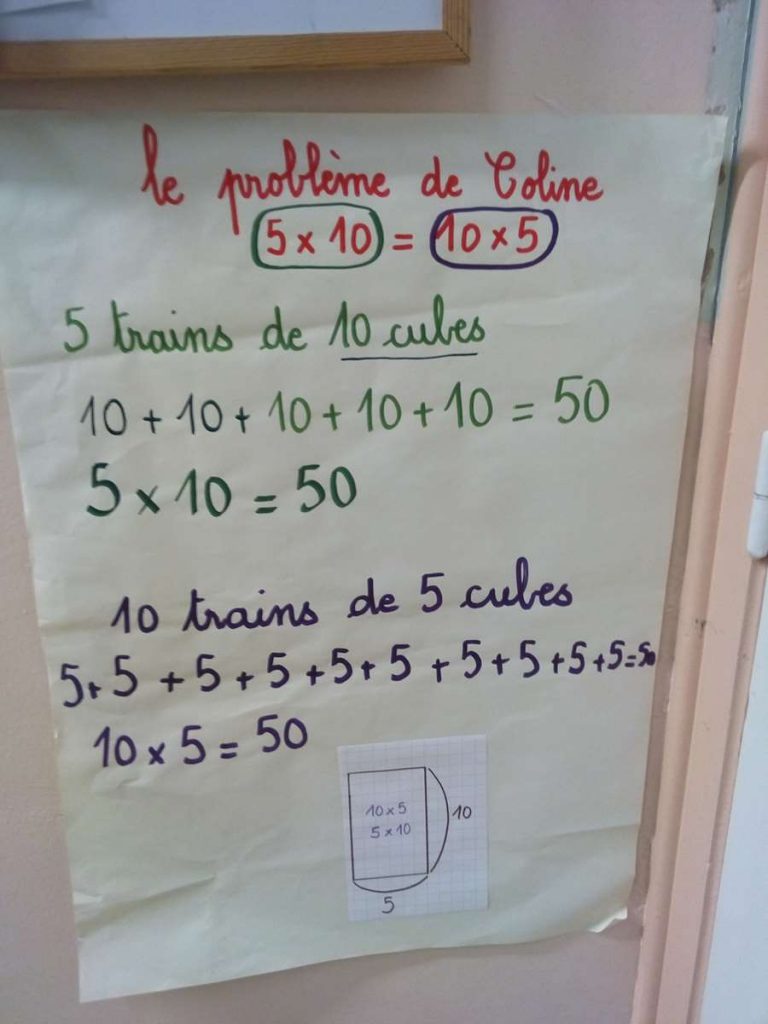 le problème de Coline
5 x 10 = 10 x 5
5 trains de 10 cubes
10 + 10 + 10 + 10 + 10 = 50
5 x 10 = 50
10 trains de 5 cubes
5 + 5 + 5 + 5 + 5 + 5 + 5 + 5 + 5 + 5 = 50
10 x 5 = 50
10 x 5
5 x 10
10
5